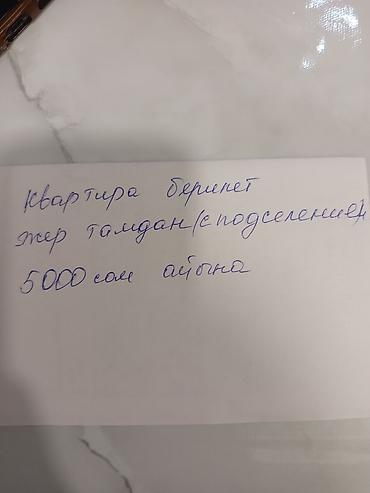 Квартира берилет
жер тамдан (с подселением)
5000 сом айына